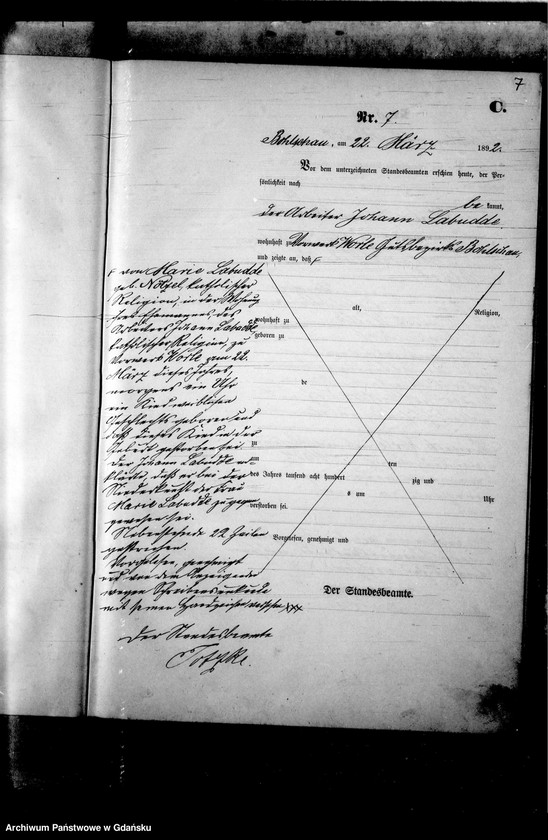 7
C.
Nr. 7.
Bohlschau, am 22. März 1892.
Vor dem unterzeichneten Standesbeamten erschien heute, der Per-
sönlichkeit nach
be kannt,
der Arbeiter Johann Labudde
wohnhaft zu Vorwerk Worle Gutsbezirk Bohlschau,
und zeigte an, daß
von Marie Labudde
geb. Nötzel, katholischer
Religion, in der Wohnung
ihres Ehemannes des
Arbeiters Johann Labudde
katholischer Religion, zu
Vorwerk Worle am 22.
März dieses Jahres,
morgens ein Uhr
ein Kind weiblichen
Geschlechts geboren und
daß dieses Kind in der
Geburt gestorben sei.
Der Johann Labudde er-
klärte, daß er bei der
Niederkunft der Frau
Marie Labudde zugegen
gewesen sei.
Nebenstehende 22 Zeilen
gestrichen.
Vorgelesen, genehmigt
und von dem Anzeigenden
wegen Schreibensunkunde
mit seinem Handzeichen versehen xxx
Der Standesbeamte
alt, Religion,
wohnhaft zu
geboren zu
de
zu
am ten
des Jahres tausend acht hundert zig und
s um Uhr
verstorben sei.
Vorgelesen, genehmigt und
Der Standesbeamte.
Archiwum Państwowe w Gdańsku